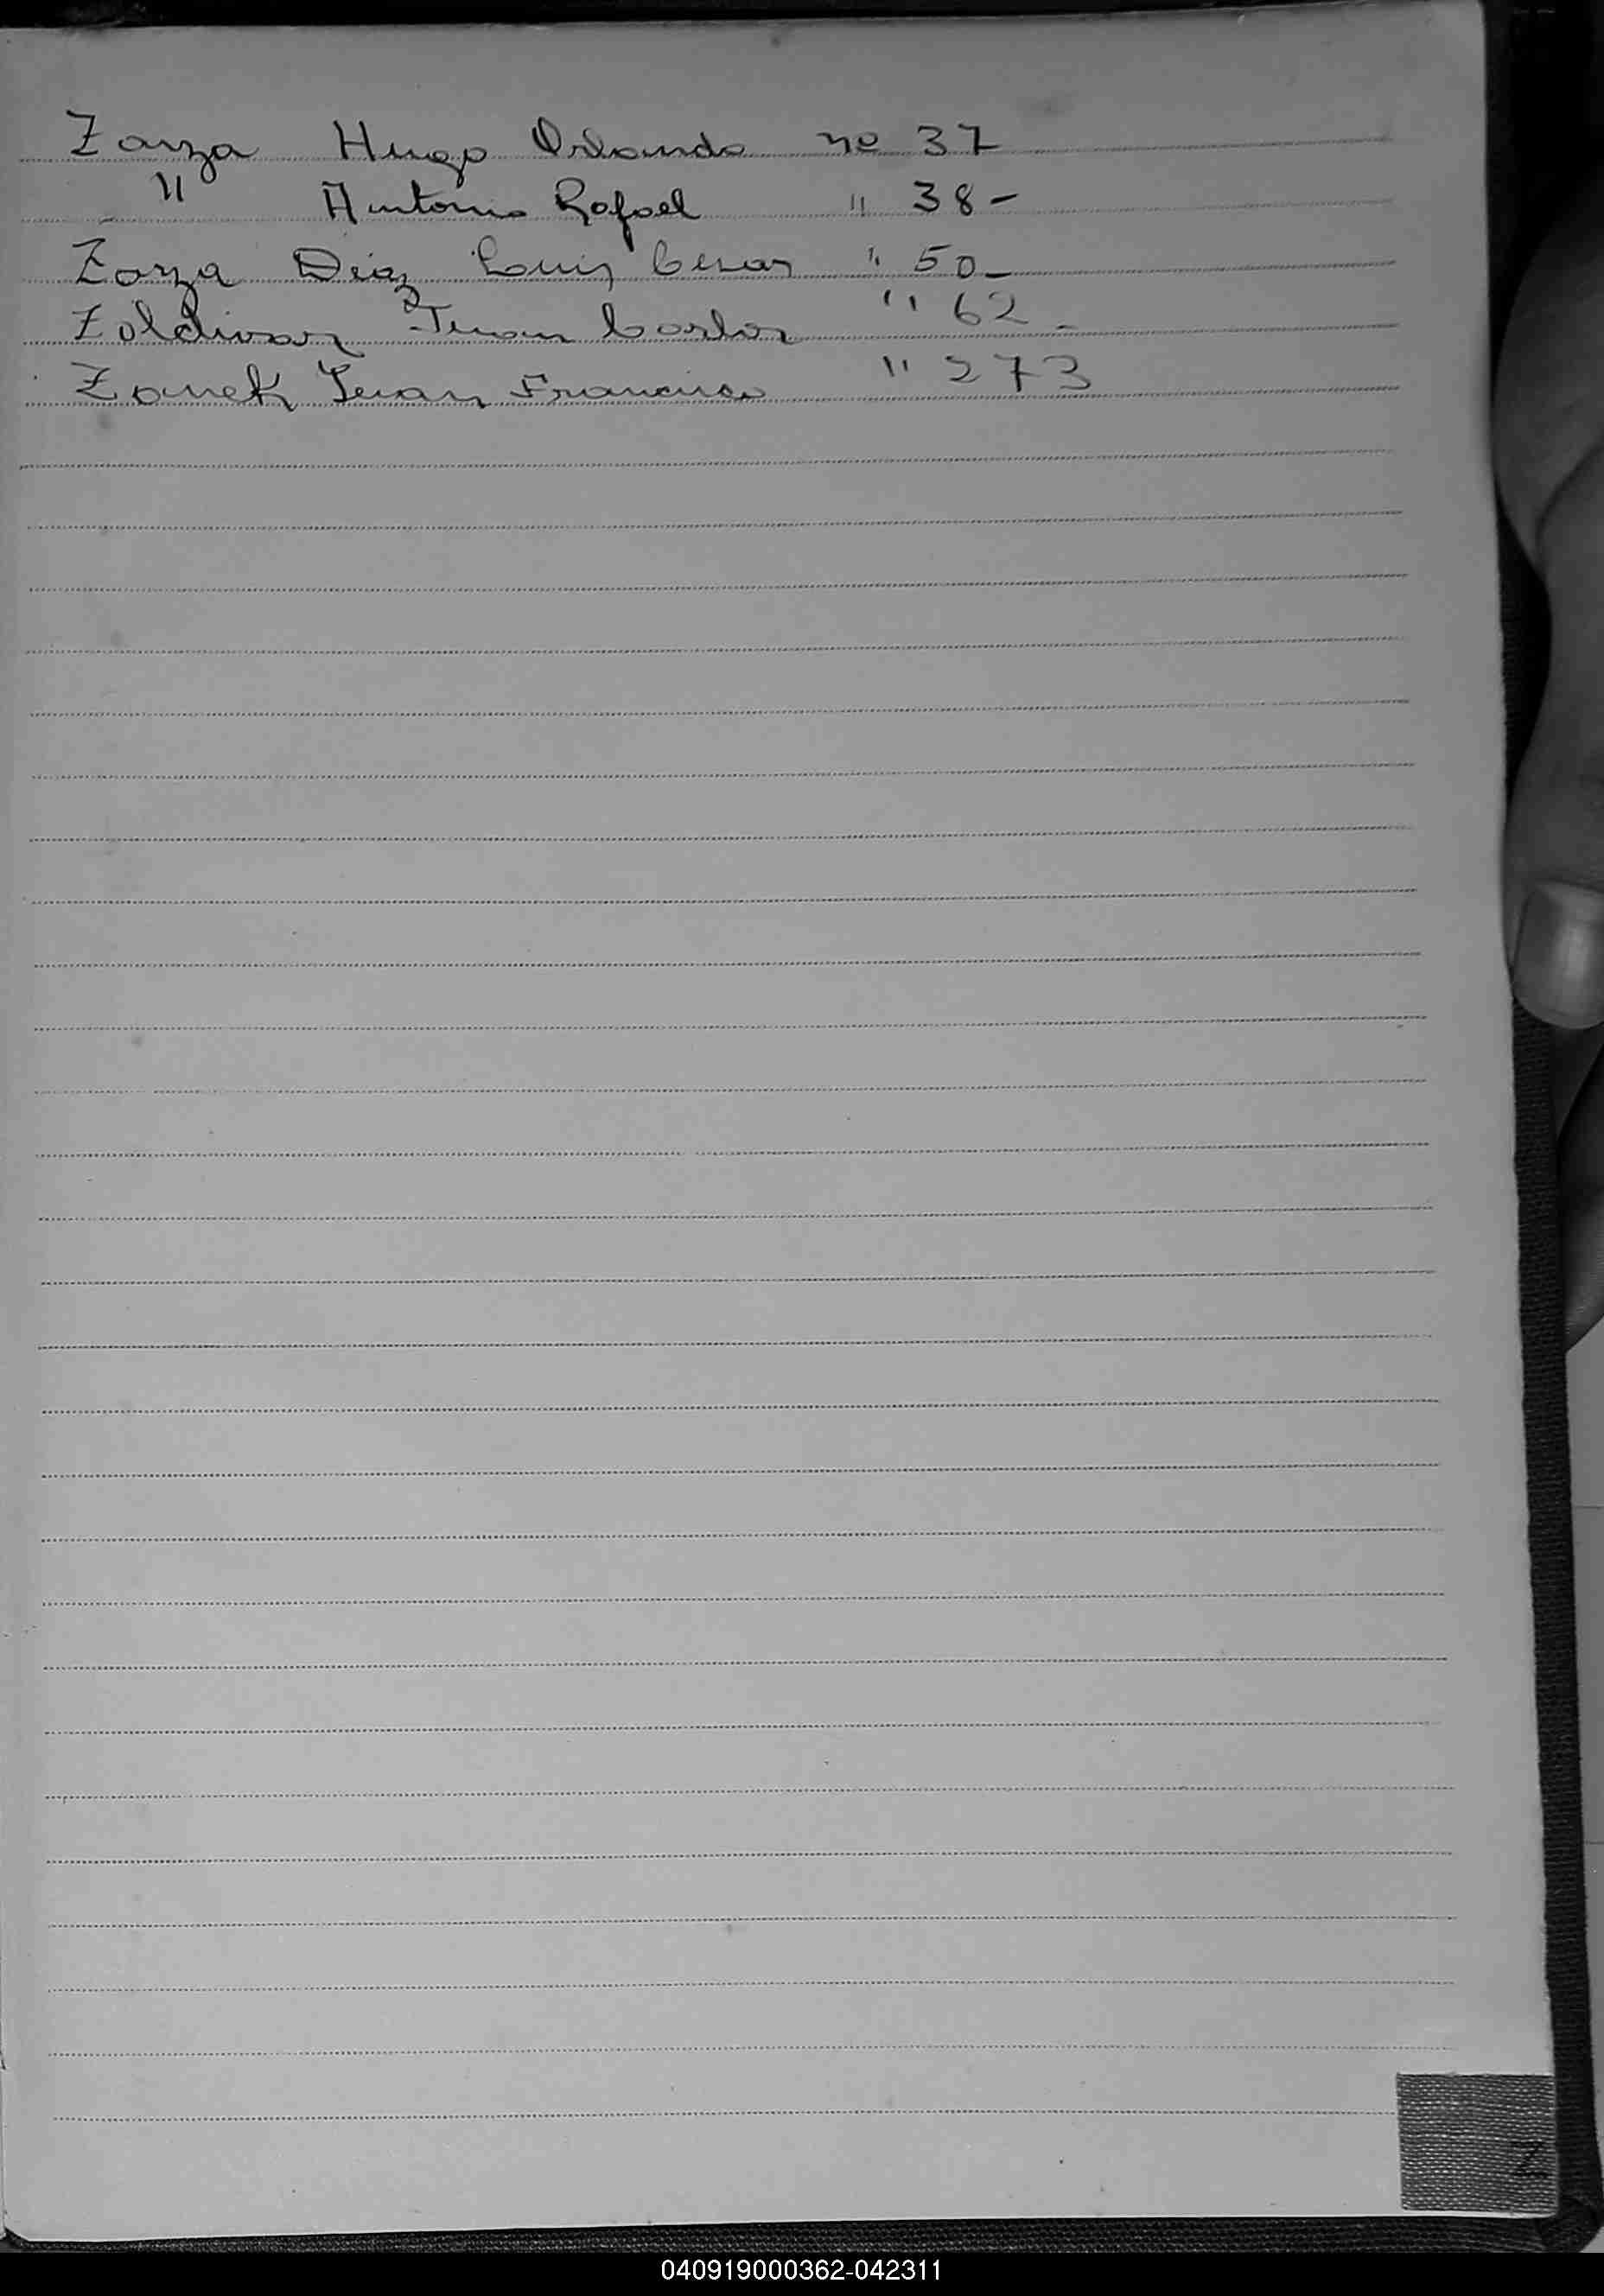 Zarza Hugo Orlando no 37
" Antonio Rafael " 38-
Zarza Diaz Luis Cesar " 50-
Zaldivar Juan Carlos " 62-
Zanek Juan Francisco " 273
Z
040919000362-042311